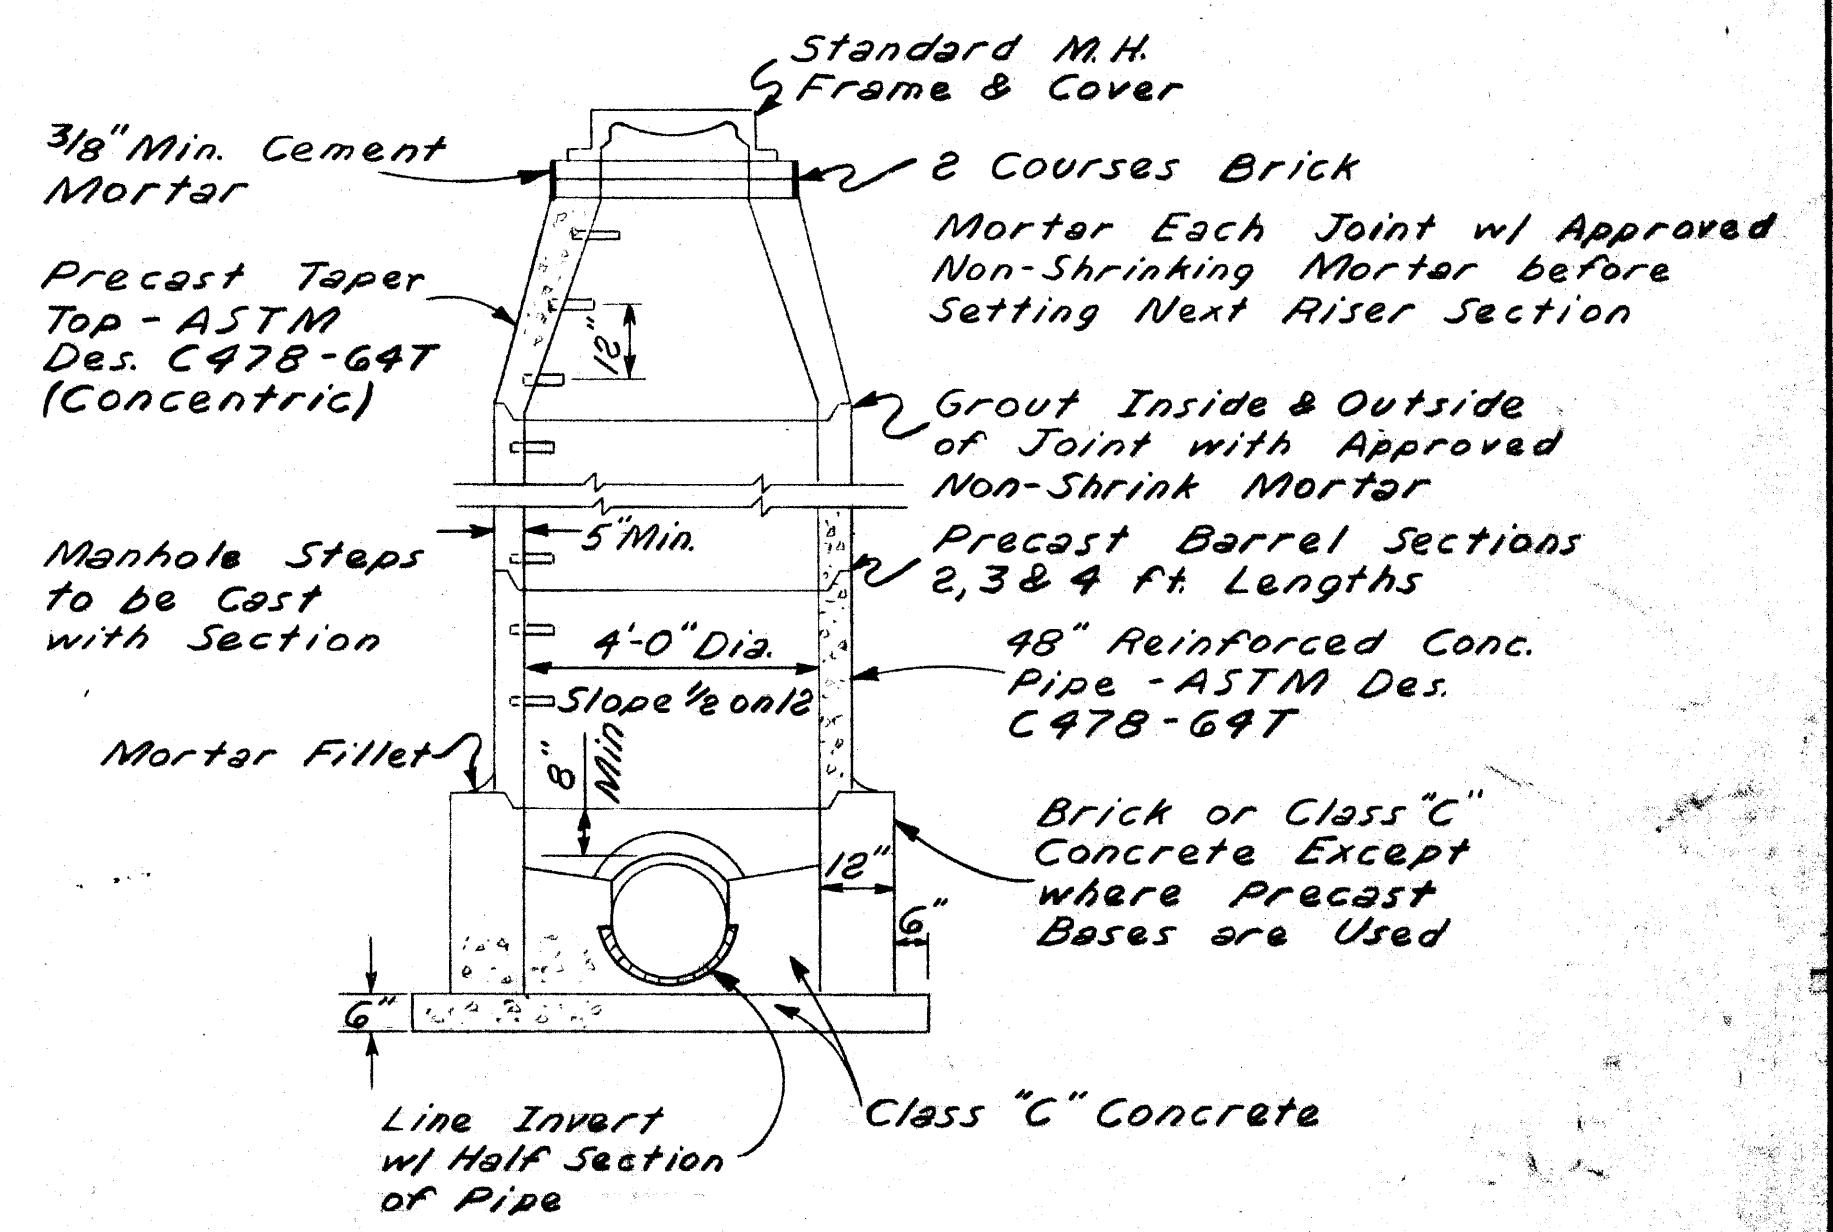 Standard M.H.
Frame & Cover
3/8" Min. Cement
Mortar
2 Courses Brick
Mortar Each Joint w/ Approved
Non-Shrinking Mortar before
Setting Next Riser Section
Precast Taper
Top - ASTM
Des. C478-64T
(Concentric)
12"
Grout Inside & Outside
of Joint with Approved
Non-Shrink Mortar
5" Min.
Precast Barrel Sections
2, 3 & 4 ft. Lengths
Manhole Steps
to be Cast
with Section
4'-0" Dia.
48" Reinforced Conc.
Pipe - ASTM Des.
C478-64T
Slope 1/2 on 12
Mortar Fillet
8"
Min
Brick or Class "C"
Concrete Except
where Precast
Bases are Used
12"
6"
6"
Line Invert
w/ Half Section
of Pipe
Class "C" Concrete